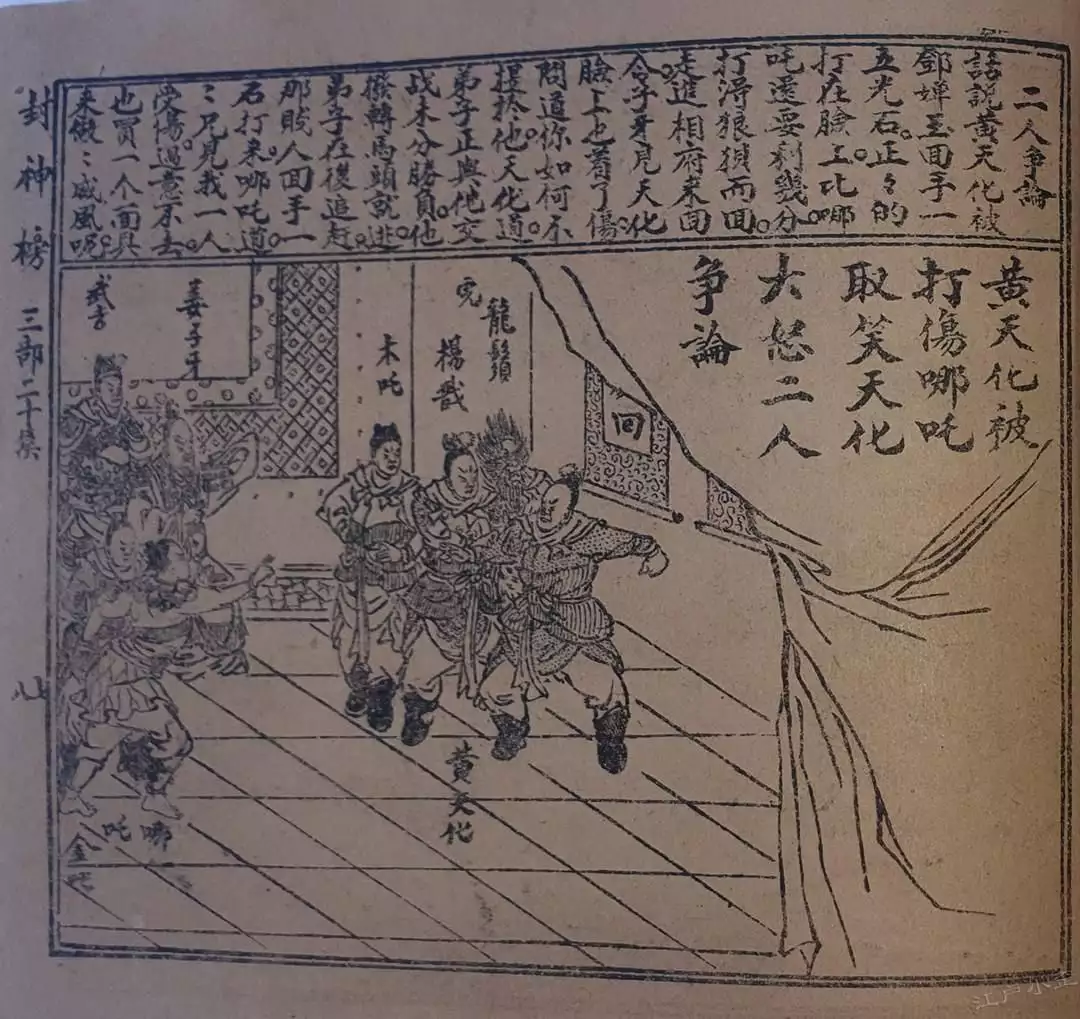 二人争論
話説黄天化被
鄧嬋玉面手一
五光石。正々的
打在臉上。比哪
吒還要利幾分。
打淂狼狽而回
走進相府来回
令。子牙見天化
臉上也着了傷。
問道你如何不
提於他。天化道
弟子正與他交
战未分勝負。他
撥轉馬頭就逃。
弟子在後追赶。
那賎人回手一
石打来。哪吒道
二兄見我一人
受傷。過意不去。
也買一个面具
来做々威風呢。
黄天化被
打傷哪吒
取笑天化
大怒二人
争論
回
龍鬚
虎
楊戩
木吒
姜子牙
武吉
黄天化
哪吒
金吒
封神榜
三部二十集
江户小生